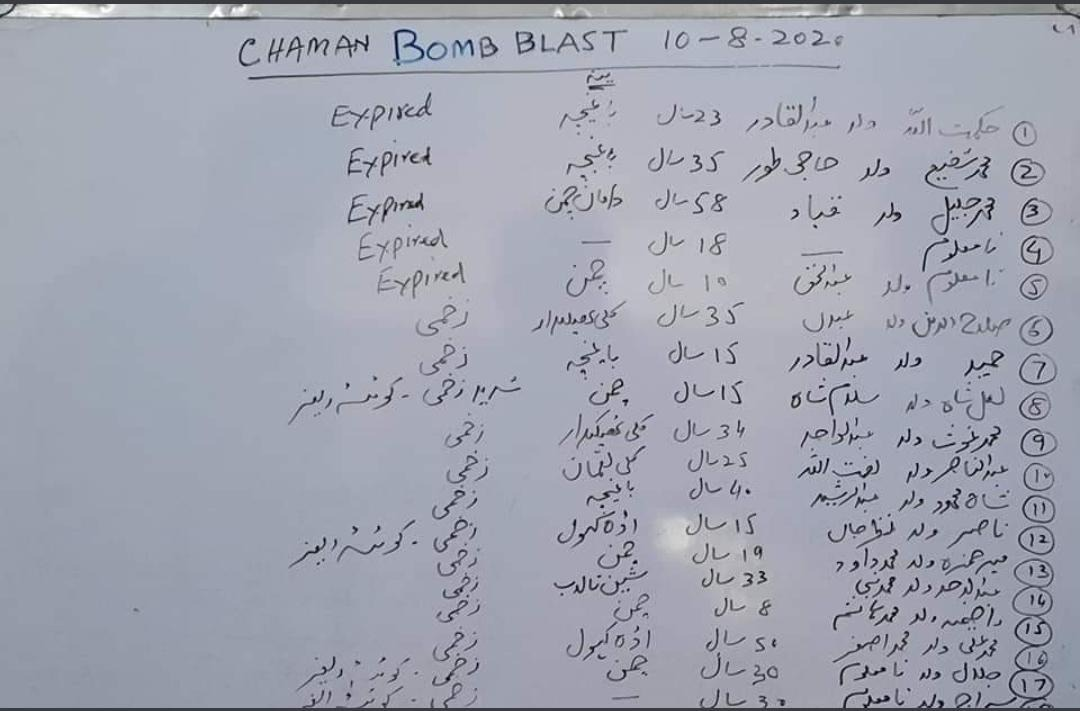 CHAMAN BOMB BLAST 10-8-2020
پتہ
① حکمت اللہ ولد عبدالقادر 23 سال باغیچہ Expired
② محمد شفیع ولد حاجی طور 35 سال باغیچہ Expired
③ محمد جمیل ولد قباد 58 سال دامان چمن Expired
④ نامعلوم — 18 سال — Expired
⑤ نامعلوم ولد عبدالخق 10 سال چمن Expired
⑥ صلاح الدین ولد عبدل 35 سال کلی ٹھیکیدار زخمی
⑦ حمید ولد عبدالقادر 15 سال باغیچہ زخمی
⑧ لعل شاہ ولد سلام شاہ 15 سال چمن شدید زخمی - کوئٹہ ریفر
⑨ محمد غوث ولد عبدالواجد 34 سال کلی ٹھیکیدار زخمی
⑩ عبدالناصر ولد نعمت اللہ 25 سال کلی لقمان زخمی
⑪ شاہ محمود ولد عبدالرشید 40 سال باغیچہ زخمی
⑫ ناصر ولد جان 15 سال اڈہ کہول زخمی - کوئٹہ ریفر
⑬ میر حمزہ ولد محمد داود 19 سال چمن زخمی
⑭ عبدالاحد ولد محمد نبی 33 سال شین تالاب زخمی
⑮ ولد محمد ہاشم 8 سال چمن زخمی
⑯ محمد علی ولد محمد اصغر 50 سال اڈہ کہول زخمی
⑰ جلال ولد نامعلوم 30 سال چمن زخمی - کوئٹہ ریفر
سراج ولد نامعلوم 30 سال — زخمی - کوئٹہ